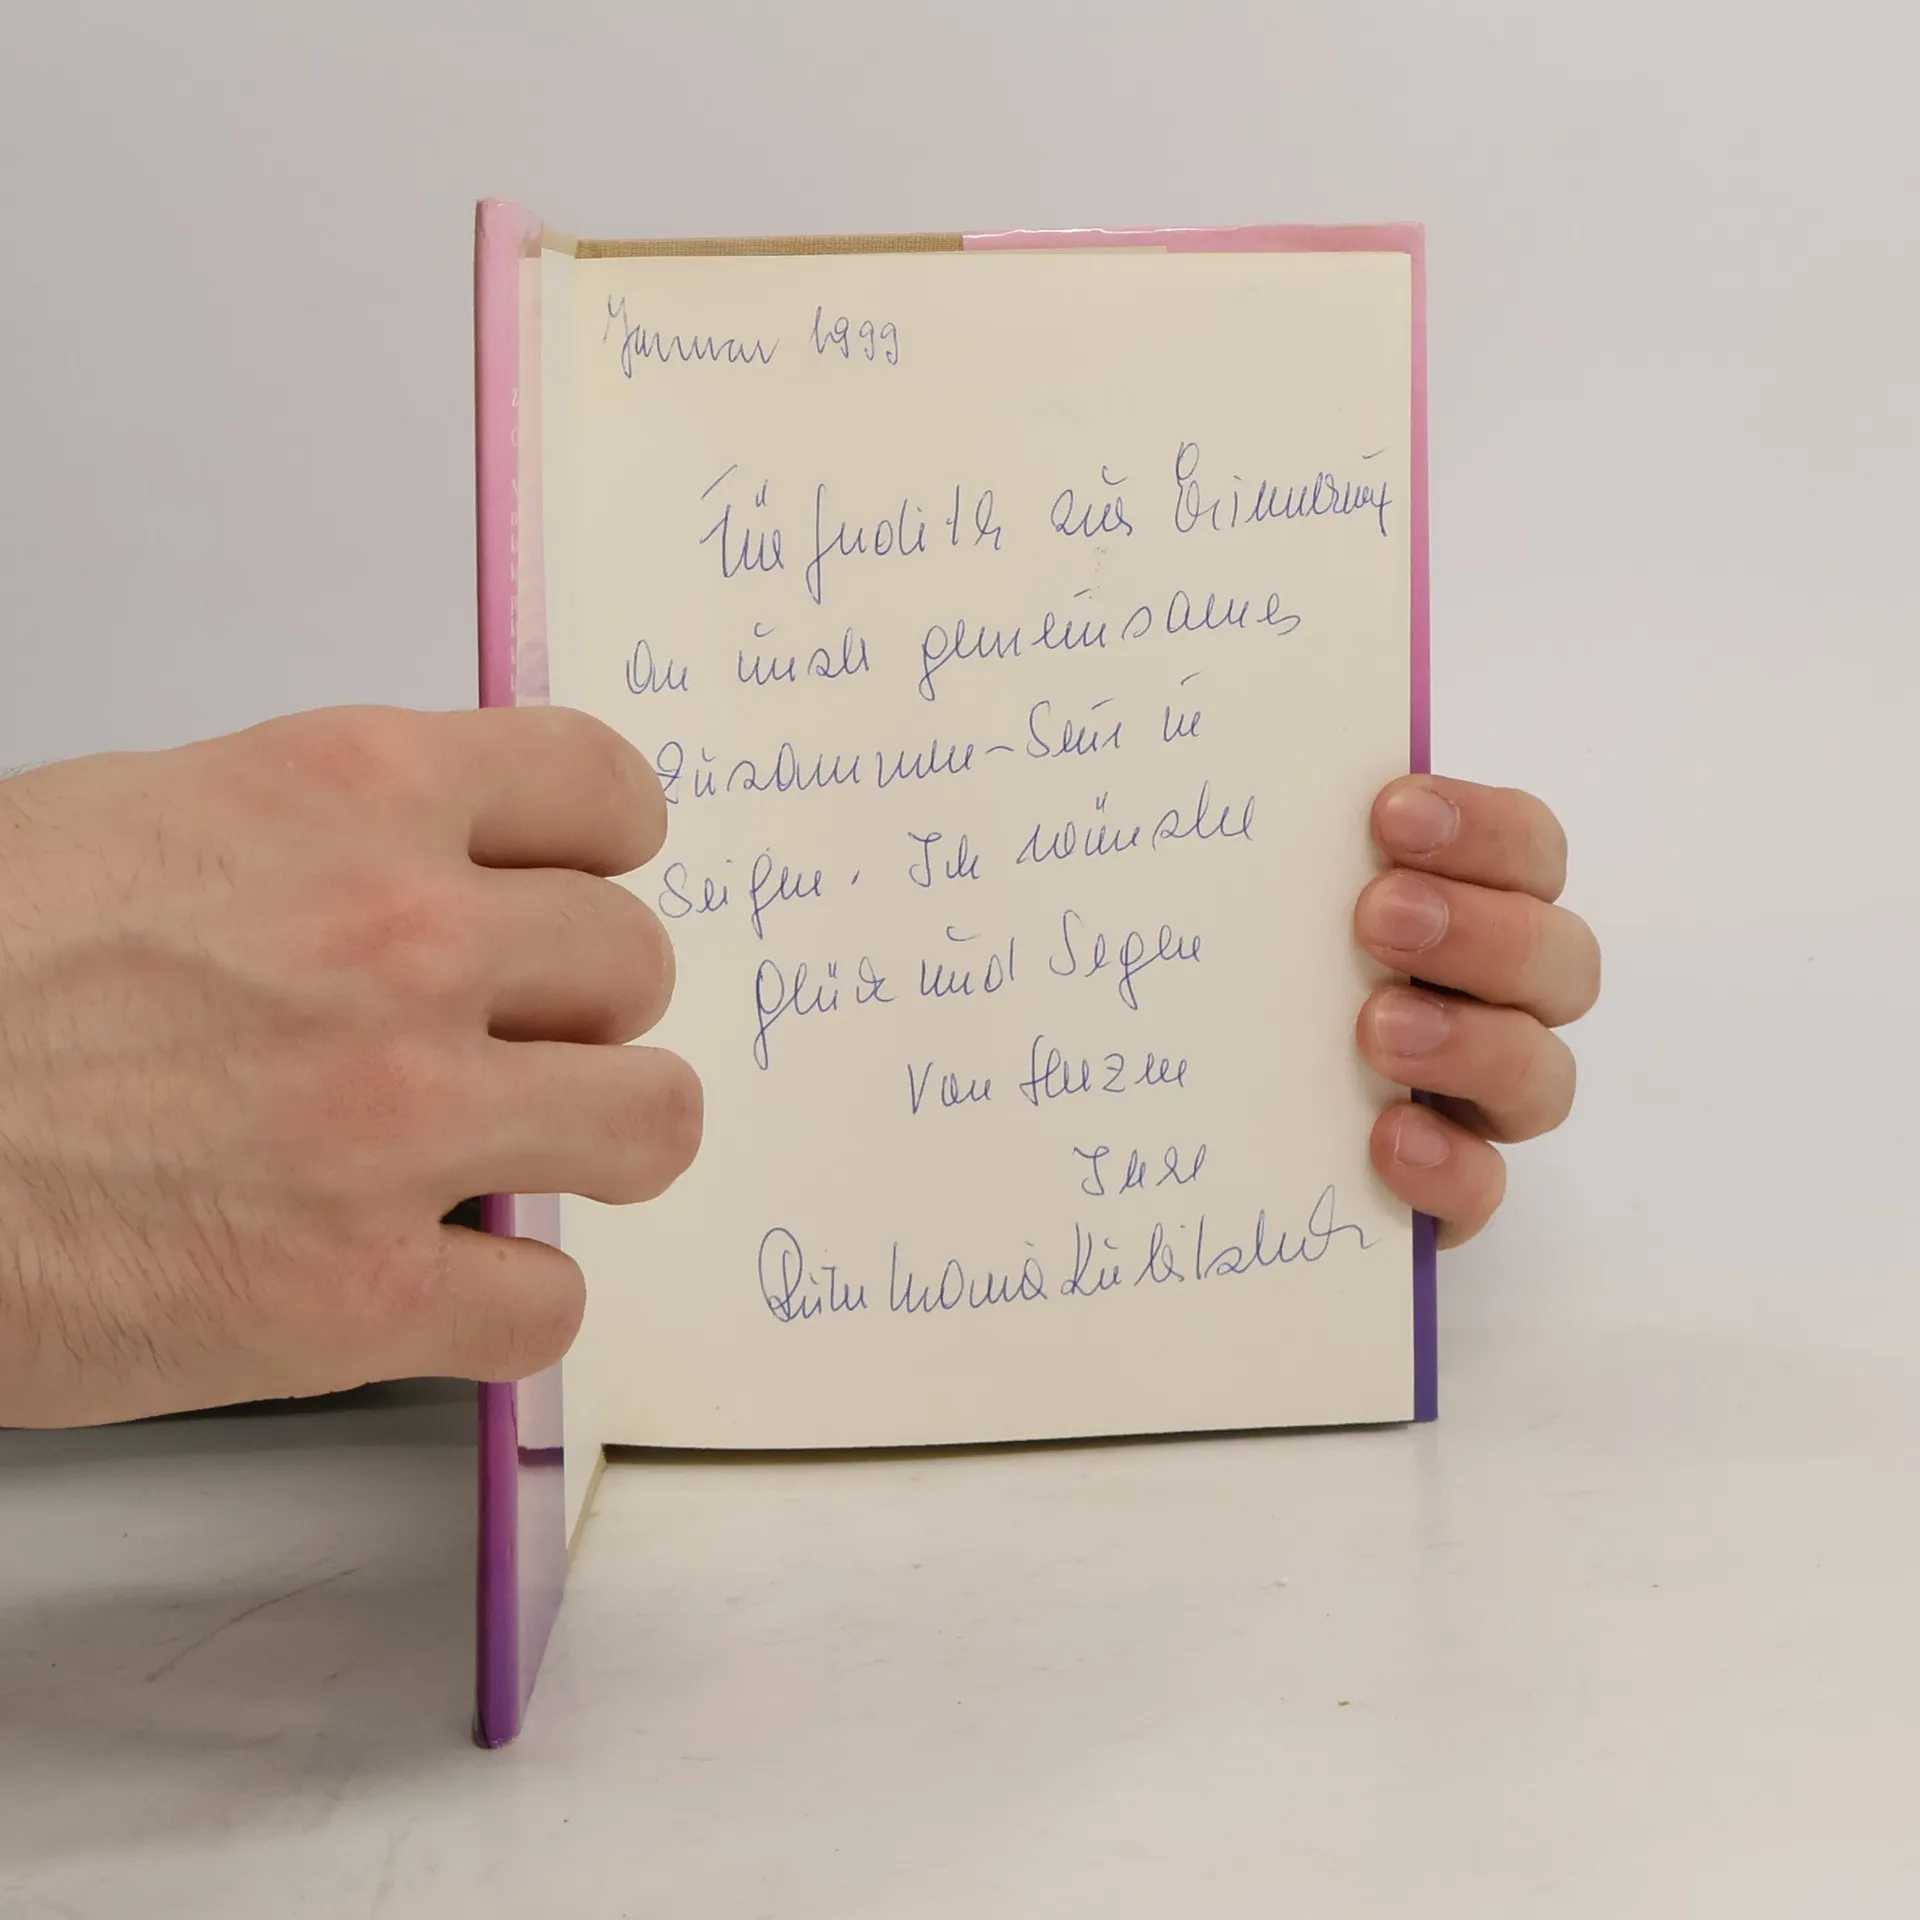 Januar 1999
Für Judith zur Erinnerung
an unser gemeinsames
Zusammen-Sein in
Ich wünsche
Glück und Segen
Von Herzen
Ihre
Maria